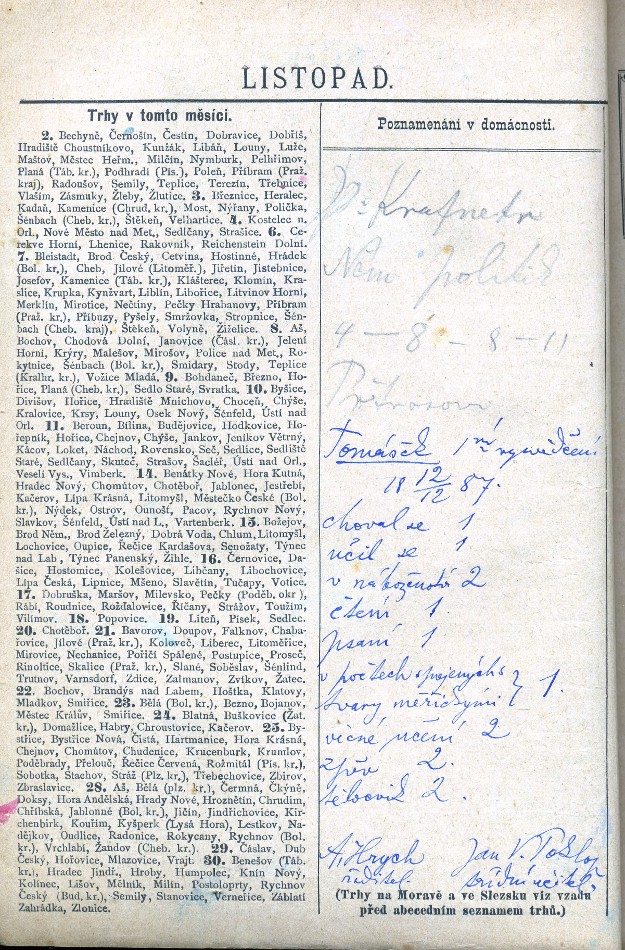 LISTOPAD.
Trhy v tomto měsíci.
2. Bechyně, Černošín, Čestin, Dobravice, Dobříš,
Hradiště Choustníkovo, Kunžák, Libáň, Louny, Luže,
Maštov, Městec Heřm., Milčín, Nymburk, Pelhřimov,
Planá (Táb. kr.), Podhradí (Pís.), Poleň, Příbram (Praž.
kraj), Radoušov, Semily, Teplice, Terezín, Třebnice,
Vlašim, Zásmuky, Žleby, Žlutice. 3. Březnice, Heralec,
Kadaň, Kamenice (Chrud. kr.), Most, Nýřany, Polička,
Šénbach (Cheb. kr.), Štěkeň, Velhartice. 4. Kostelec n
Orl., Nové Město nad Met., Sedlčany, Strašice. 6. Ce-
rekve Horní, Lhenice, Rakovník, Reichenstein Dolní.
7. Bleistadt, Brod Český, Cetvina, Hostinné, Hrádek
(Bol. kr.), Cheb, Jílové (Litoměř.), Jiřetín, Jistebnice,
Josefov, Kamenice (Táb. kr.), Klášterec, Klomín, Kra-
slice, Krupka, Kynžvart, Liblín, Libořice, Litvínov Horní,
Merklín, Mirotice, Nečtiny, Pečky Hrabanovy, Příbram
(Praž. kr.), Příbuzy, Pyšely, Smržovka, Stropnice, Šén-
bach (Cheb. kraj), Štěkeň, Volyně, Žiželice. 8. Aš,
Bochov, Chodová Dolní, Janovice (Čásl. kr.), Jelení
Horní, Krýry, Malešov, Mirošov, Police nad Met., Ro-
kytnice, Šénbach (Bol. kr.), Smidary, Stody, Teplice
(Kralhr. kr.), Vožice Mladá. 9. Bohdaneč, Březno, Ho-
řice, Planá (Cheb. kr.), Sedlo Staré, Svratka. 10. Byšice,
Divišov, Hořice, Hradiště Mnichovo, Choceň, Chýše,
Kralovice, Krsy, Louny, Osek Nový, Šénfeld, Ústí nad
Orl. 11. Beroun, Bílina, Budějovice, Hodkovice, Ho-
řepník, Hořice, Chejnov, Chýše, Jankov, Jeníkov Větrný,
Kácov, Loket, Náchod, Rovensko, Seč, Sedlice, Sedliště
Staré, Sedlčany, Skuteč, Strašov, Šacléř, Ústí nad Orl.,
Veselí Vys., Vimberk. 14. Benátky Nové, Hora Kutná,
Hradec Nový, Chomútov, Chotěboř, Jablonec, Jestřebí,
Kačerov, Lípa Krásná, Litomyšl, Městečko České (Bol.
kr.), Nýdek, Ostrov, Ounošť, Pacov, Rychnov Nový,
Slavkov, Šénfeld, Ústí nad L., Vartenberk. 15. Božejov,
Brod Něm., Brod Železný, Dobrá Voda, Chlum, Litomyšl,
Lochovice, Oupice, Řečice Kardašova, Senožaty, Týnec
nad Lab, Týnec Panenský, Žihle. 16. Černovice, Da-
šice, Hostomice, Kolešovice, Libčany, Libochovice,
Lípa Česká, Lipnice, Mšeno, Slavětín, Tučapy, Votice.
17. Dobruška, Maršov, Milevsko, Pečky (Poděb. okr),
Rábí, Roudnice, Rožďalovice, Říčany, Strážov, Toužim,
Vilímov. 18. Popovice. 19. Liteň, Písek, Sedlec.
20. Chotěboř. 21. Bavorov, Doupov, Falknov, Chaba-
řovice, Jílové (Praž. kr.), Koloveč, Liberec, Litoměřice,
Mirovice, Nechanice, Poříčí Spálené, Postupice, Proseč,
Rinoltice, Skalice (Praž. kr.), Slané, Soběslav, Šénlind,
Trutnov, Varnsdorf, Zdice, Zalmanov, Zvíkov, Žatec.
22. Bochov, Brandýs nad Labem, Hoštka, Klatovy,
Mladkov, Smiřice. 23. Bělá (Bol. kr.), Bezno, Bojanov,
Městec Králův, Smiřice. 24. Blatná, Buškovice (Žat.
kr.), Domažlice, Habry, Chroustovice, Kačerov. 25. By-
střice, Bystřice Nová, Čistá, Hartmanice, Hora Krásná,
Chejnov, Chomútov, Chudenice, Krucenburk, Krumlov,
Poděbrady, Přelouč, Řečice Červená, Rožmitál (Pís. kr.),
Sobotka, Stachov, Stráž (Plz. kr.), Třebechovice, Zbirov,
Zbraslavice. 28. Aš, Bělá (plz. kr.), Čermná, Čkýně,
Doksy, Hora Andělská, Hrady Nové, Hroznětín, Chrudim,
Chříbská, Jablonné (Bol. kr.), Jičín, Jindřichovice, Kir-
chenbirk, Kouřim, Kyšperk (Lysá Hora), Lestkov, Na-
dějkov, Oudlice, Radonice, Rokycany, Rychnov (Bol.
kr.), Vrchlabí, Žandov (Cheb. kr.). 29. Čáslav, Dub
Český, Hořovice, Mlazovice, Vrajt. 30. Benešov (Táb.
kr.), Hradec Jindř., Hroby, Humpolec, Knín Nový,
Kolinec, Lišov, Mělník, Milín, Postoloprty, Rychnov
Český (Bud. kr.), Semily, Stanovice, Verneřice, Záblatí
Zahrádka, Zlonice.
Poznamenání v domácnosti.
4 — 8 — 8 — 11
Tomášek 1ní vysvědčení
18 12/12 87.
choval se 1
učil se 1
v náboženství 2
čtení 1.
psaní 1
v počtech spojených s
tvary měřickými } 1.
věcné učení 2
zpěv 2.
tělocvik 2.
A. Hrych Jan V.
ředitel. třídní učitel.
(Trhy na Moravě a ve Slezsku viz vzadu
před abecedním seznamem trhů.)